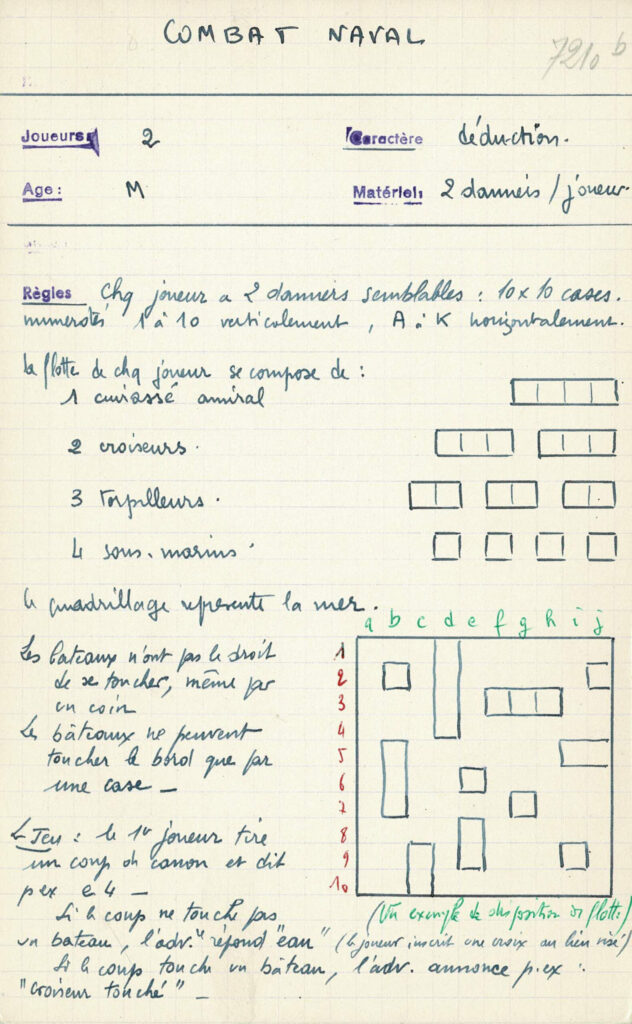 COMBAT NAVAL
7210 b
Joueurs 2 Caractère déduction.
Age: M Matériel: 2 damiers / joueur.
Règles Chq joueur a 2 damiers semblables : 10 x 10 cases.
numerotés 1 à 10 verticalement, A à K horizontalement.
la flotte de chq joueur se compose de :
1 cuirassé amiral
2 croiseurs.
3 torpilleurs.
4 sous-marins.
le quadrillage represente la mer.
a b c d e f g h i j
Les bateaux n'ont pas le droit
de se toucher, même par
un coin
Les bâteaux ne peuvent
toucher le bord que par
une case _
1
2
3
4
5
6
7
8
9
10
Le Jeu : le 1er joueur tire
un coup de canon et dit
p ex e 4 _
(Un exemple de disposition de flotte)
Si le coup ne touche pas
un bateau, l'adv. répond "eau" (le joueur inscrit une croix au lieu visé)
Si le coup touche un bâteau, l'adv. annonce p. ex :
"croiseur touché" _